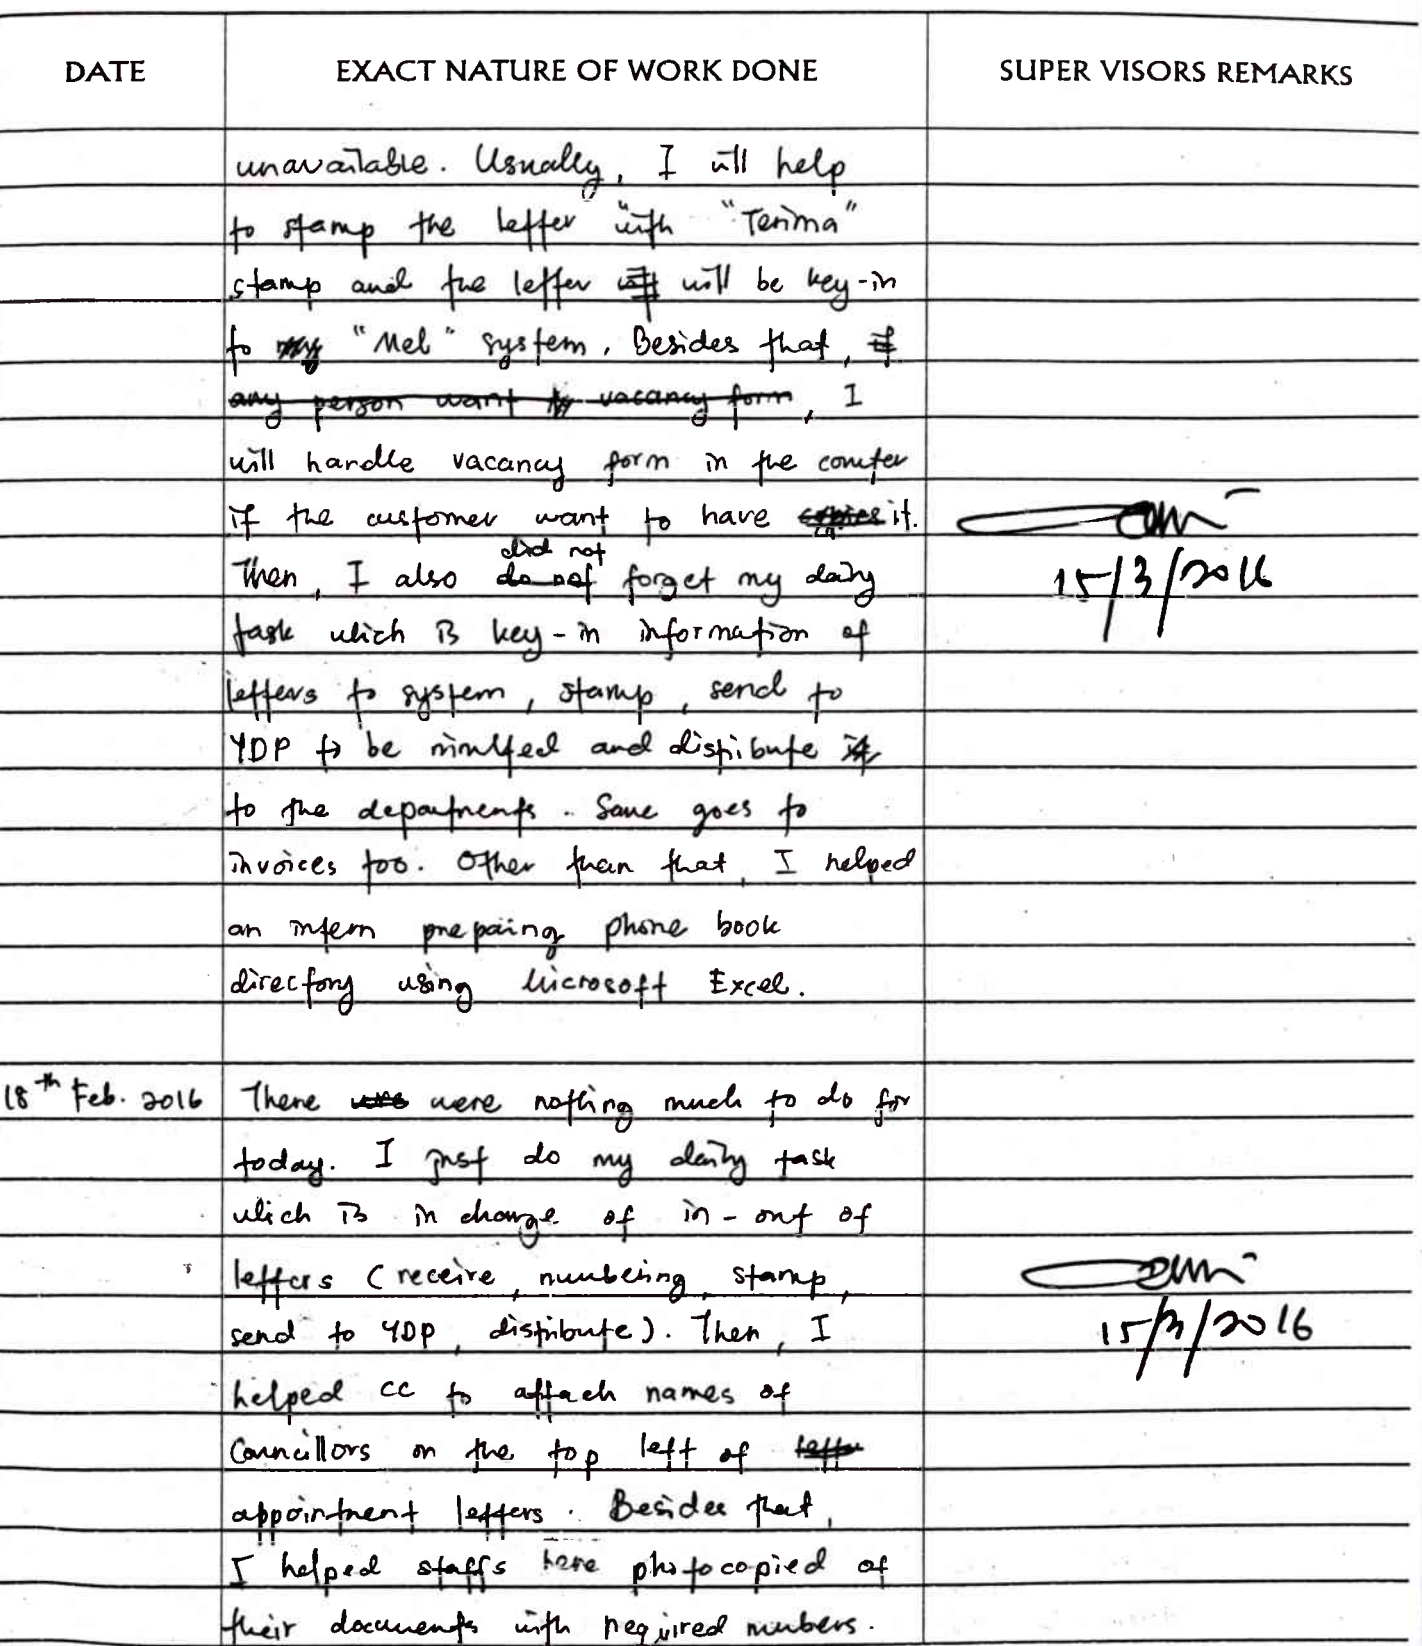 DATE EXACT NATURE OF WORK DONE SUPER VISORS REMARKS
unavailable. Usually, I will help
to stamp the letter with "Terima"
stamp and the letter will be key-in
to "Mel" system. Besides that, if
any person want to vacancy form, I
will handle vacancy form in the counter
if the customer want to have copies it.
did not
Then, I also do not forget my daily
15/3/2016
task which is key-in information of
letters to system, stamp, send to
YDP to be minuted and distribute it
to the departments. Same goes to
invoices too. Other than that, I helped
an intern preparing phone book
directory using Microsoft Excel.
18th Feb. 2016 There was were nothing much to do for
today. I just do my daily task
which is in charge of in-out of
letters (receive, numbering, stamp,
send to YDP, distribute). Then, I
15/3/2016
helped CC to attach names of
Councillors on the top left of letter
appointment letters. Besides that,
I helped staffs here photocopied of
their documents with required numbers.